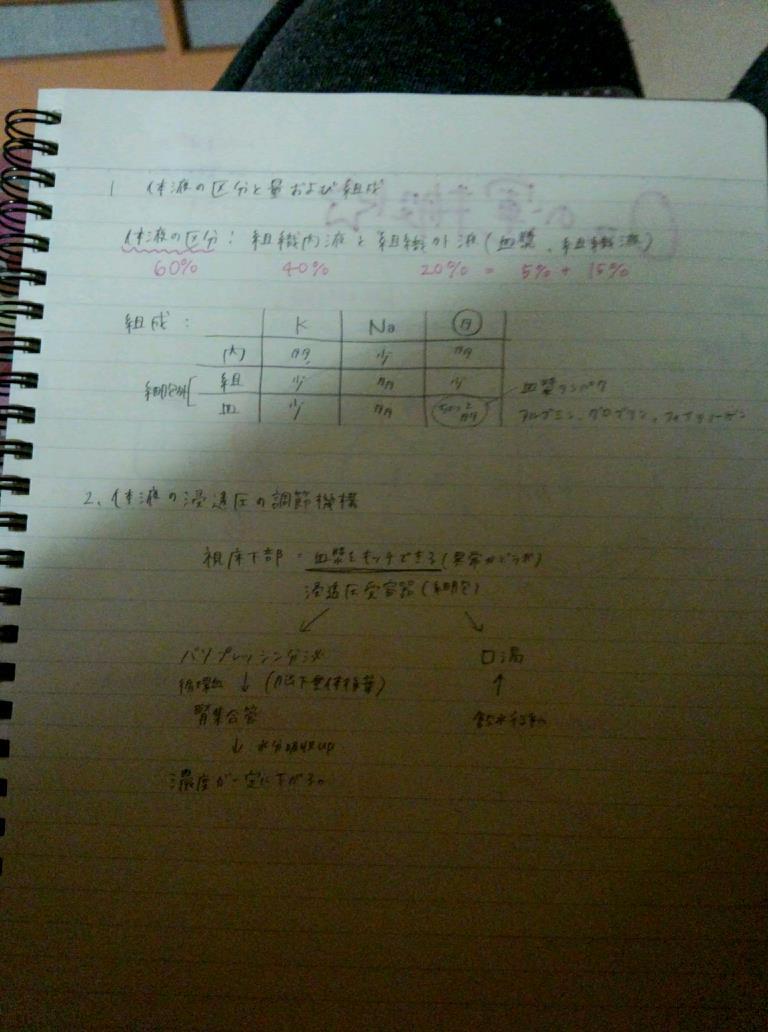 1 体液の区分と量および組成
体液の区分: 組織内液と組織外液(血漿、組織液)
60% 40% 20% = 5% + 15%
組成: K Na タ
内 多 少 多
細胞外 組 少 多 少
血 少 多 ちょっと多
血漿タンパク
アルブミン、グロブリン、フィブリノーゲン
2、体液の浸透圧の調節機構
視床下部 - 血漿をキャッチできる(異常かどうか)
浸透圧受容器(細胞)
バソプレッシン分泌 口渇
↓ (脳下垂体後葉) ↑
腎集合管 飲水行動
↓ 水分吸収up
濃度が一定に下がる。